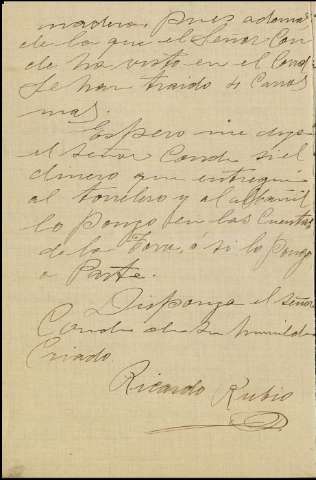 madera, pues ademas
de lo que el Señor Con
de ha visto en el
se han traido 4 Carros
mas.
Espero me diga
el señor Conde si el
dinero que entregué
al tonelero y al albañil
lo pongo en las Cuentas
de la ó si lo Pongo
a Parte.
Disponga el señor
Conde de su humilde
Criado
Ricardo Rubio